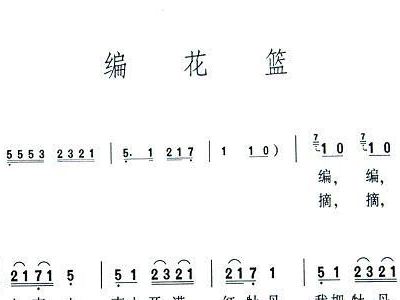 编 花 篮
5553 2321 | 5. 1 217 | 1 1 0 ) | 7 1 0 7 1 0
编, 编,
摘, 摘,
2171 5 | 51 2321 | 217 1 | 51 2321